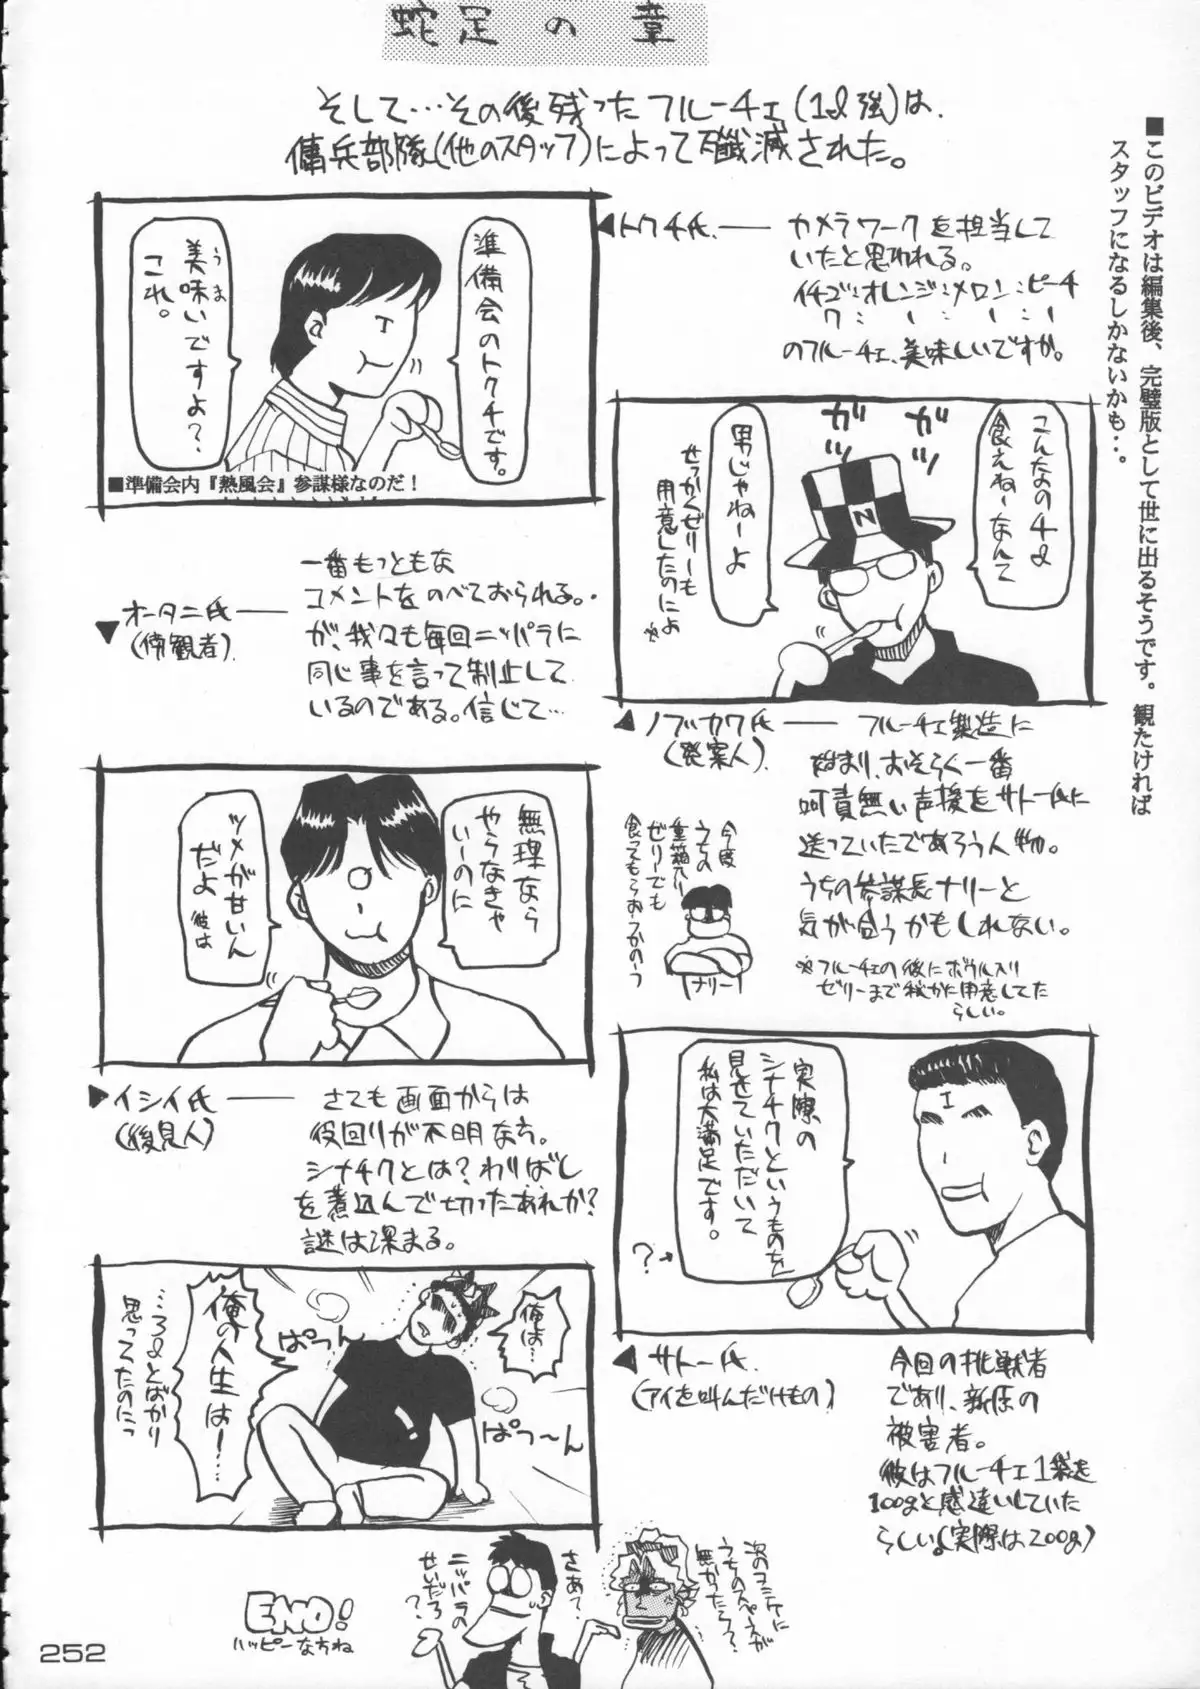 蛇足の章
そして…その後残ったフルーチェ(1ℓ強)は、
傭兵部隊(他のスタッフ)によって殲滅された。
■このビデオは編集後、完璧版として世に出るそうです。観たければ
スタッフになるしかないかも・・。
準備会のトクチです。
美味いですよ?
うま
これ。
■準備会内『熱風会』参謀様なのだ!
◀トクチ氏.── カメラワークを担当して
いたと思われる。
イチゴ:オレンジ:メロン:ピーチ
のフルーチェ、美味しいですか。
こんなの4ℓ
食えねーなんて
男じゃねーよ
ガツ
ガツ
せっかくゼリーも
用意したのによ
※
N
▼オータニ氏──
(傍観者).
一番もっともな
コメントをのべておられる。
が、我々も毎回ニッパラに
同じ事を言って制止して
いるのである。信じて…
◀ノブカワ氏── フルーチェ製造に
(発案人).
始まり、おそらく一番
呵責無い声援をサトー氏に
送っていたであろう人物。
うちの参謀長ナリーと
気が合うかもしれない。
※フルーチェの他にボウル入り
ゼリーまで秘かに用意してた
らしい。
今度
うちの
重箱入り
ゼリーでも
食ってもらおーつかのーっ
ナリー
無理なら
やらなきゃ
いーのに
ツメが甘いん
だよ 彼は
▶イシイ氏──
(後見人)
さても画面からは
役回りが不明な方。
シナチクとは?わりばし
を煮込んで切ったあれか?
謎は深まる。
実際の
シナチクというものを
見せていただいて
私は大満足です。
?→
俺は…
俺の人生は…
…3ℓとばかり
思ってたのにっ
ぱつっん
ぱつ〜ん
◀サトー氏.
(アイを叫んだけもの)
今回の挑戦者
であり、新原の
被害者。
彼はフルーチェ1袋を
100gと感違いしていた
らしい。(実際は200g)
EMO!
ハッピーなちね
ニッパラの
せいだろ?
さあて、
次のコミケに
うちのスペースが
無かったら?
252